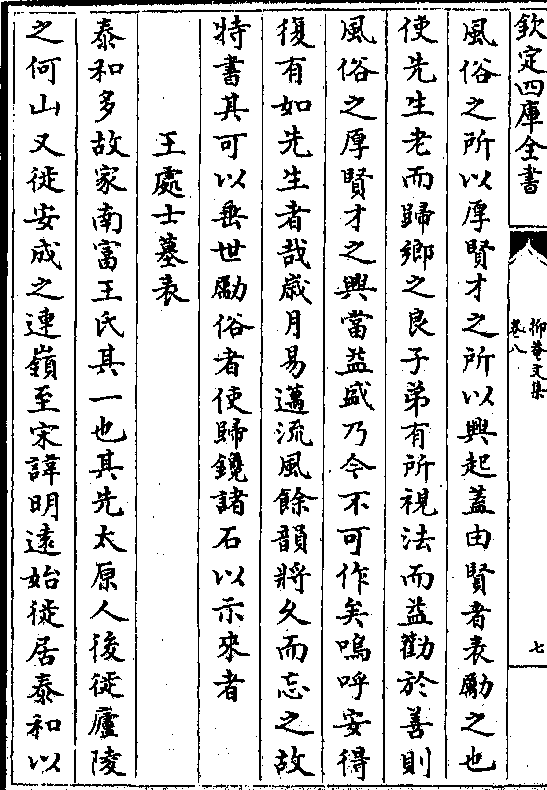 欽定四庫全書
抑菴文集
卷八
七
風俗之所以厚賢才之所以興起蓋由賢者表勵之也
使先生老而歸鄉之良子弟有所視法而益勸於善則
風俗之厚賢才之興當益盛乃今不可作矣嗚呼安得
復有如先生者哉歳月易邁流風餘韻將久而忘之故
特書其可以垂世勵俗者使歸鑱諸石以示來者
王處士墓表
泰和多故家南富王氏其一也其先太原人後徙廬陵
之何山又徙安成之連嶺至宋諱明逺始徙居泰和以